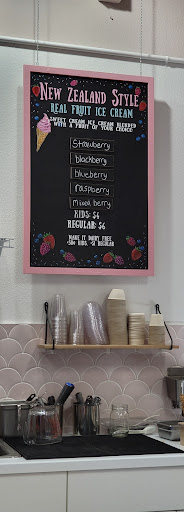 New Zealand Style
Real Fruit Ice Cream
Sweet cream ice cream blended
with a fruit of your choice
Strawberry
blackberry
blueberry
raspberry
Mixed berry
Kids: $6
Regular: $6
Make it dairy free